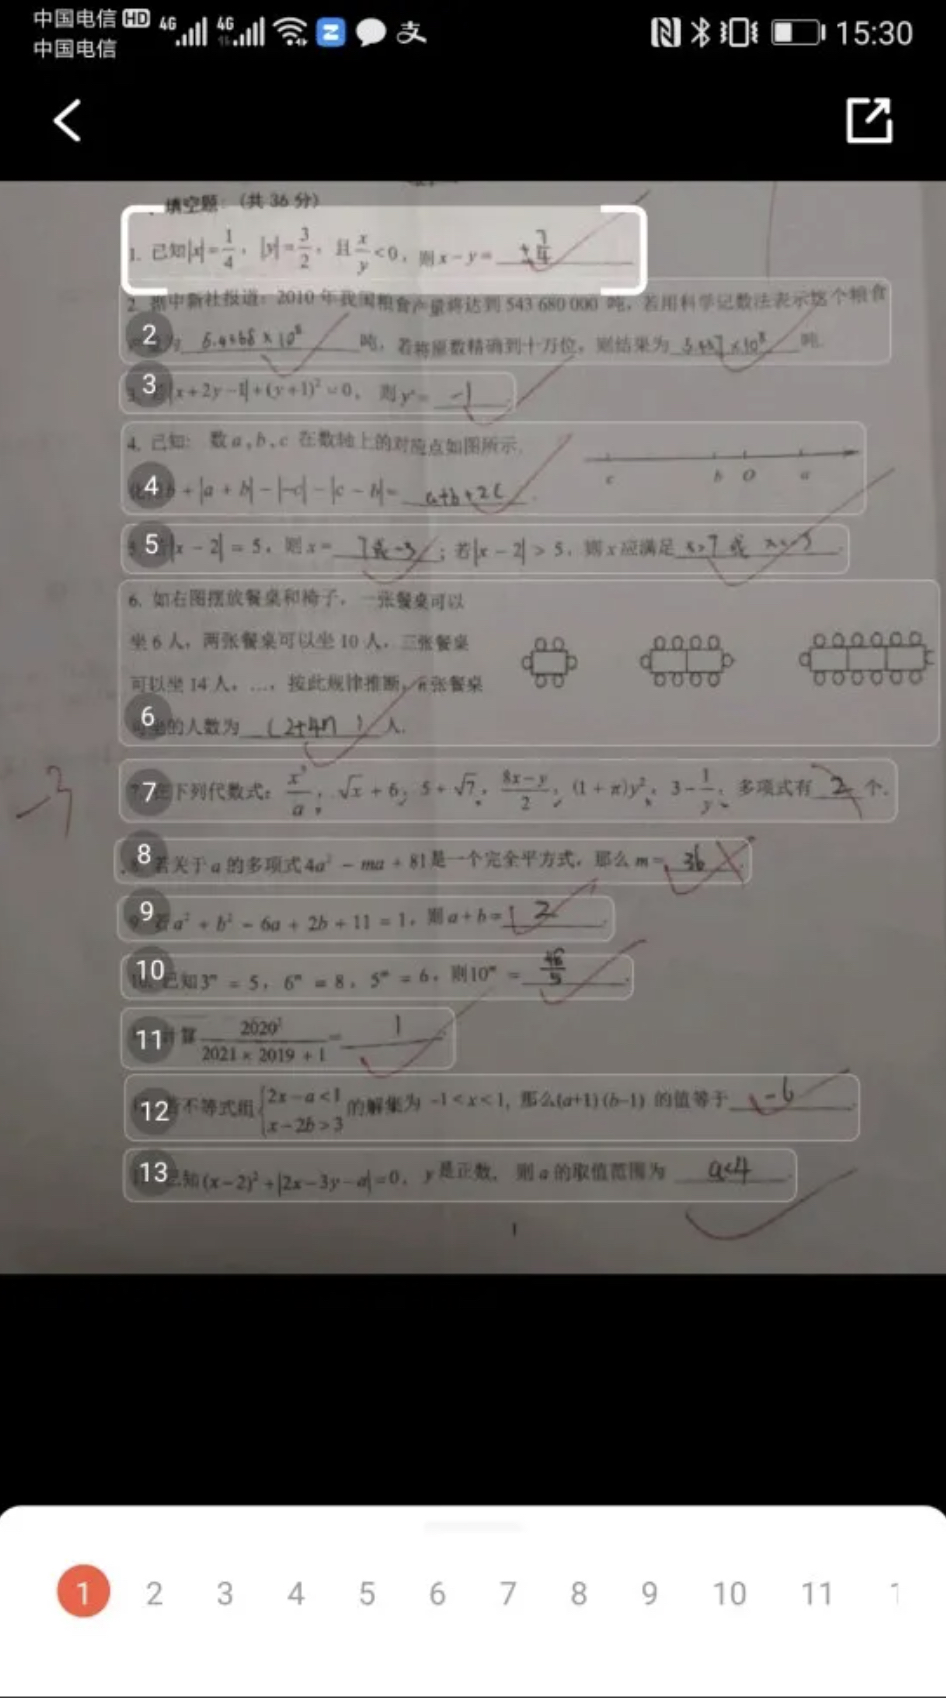 中国电信 HD 4G 4G 15:30
中国电信
填空题：（共 36 分）
1. 已知|x|=1/4，|y|=3/2，且x/y<0，则x−y= ±7/4
2. 据中新社报道：2010 年我国粮食产量将达到 543 680 000 吨，若用科学记数法表示这个粮食
2 产量为 5.4368×10⁸ 吨，若将原数精确到十万位，则结果为 5.437×10⁸ 吨
3 |x+2y−1|+(y+1)²=0，则 -1
4. 已知：数a,b,c 在数轴上的对应点如图所示.
c b O a
4 b+|a+b|−|−c|−|c−b|= a+b+2c
5 |x−2|=5，则x= 7或-3；若|x−2|>5，则x应满足 x>7 或 x<-3
6. 如右图摆放餐桌和椅子，一张餐桌可以
坐 6 人，两张餐桌可以坐 10 人，三张餐桌
可以坐 14 人，…，按此规律推断，n张餐桌
6 可坐的人数为 (2+4n) 人.
-3
7 在下列代数式：x³/a，√x+6，5+√7，(8x−y)/2，(1+π)y²，3−1/y，多项式有 2 个.
8 若关于a的多项式4a²−ma+81是一个完全平方式，那么m= 36
9 若a²+b²−6a+2b+11=1，则a+b= 2
10 已知3ᵐ=5，6ᵐ=8，5ᵐ=6，则10ᵐ= 48/5
11 计算 2020²/(2021×2019+1)= 1
12 若不等式组{2x−a<1
x−2b>3 的解集为 −1<x<1，那么(a+1)(b−1) 的值等于 -6
13 已知(x−2)²+|2x−3y−a|=0，y是正数，则a的取值范围为 a<4
1
1 2 3 4 5 6 7 8 9 10 11